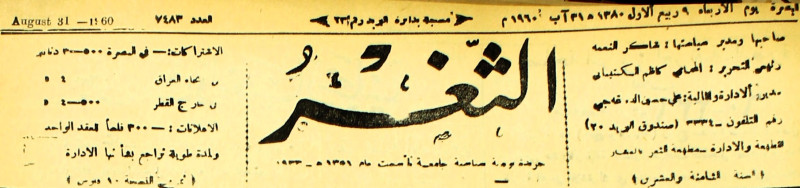 البصرة يوم الأربعاء ٩ ربيع الأول ١٣٨٠ ه ٣١ آب ١٩٦٠ م
مسجلة بدائرة البريد رقم
العدد ٧٤٨٣
August 31 — 1960
صاحبها ومدير سياستها : شاكر النعمة
رئيس التحرير : المحامي كاظم
مدير الادارة والمالية : علي حسين
رقم التلفون ـ ٣٣٣٤ (صندوق البريد ٢٠)
المطبعة والادارة ـ مطبعة الثغر
( السنة الثامنة والعشرين )
الثغر
جريدة يومية سياسية جامعة تأسست عام ١٣٥١ ه ـ ١٩٣٣
الاشتراكات : — في البصرة ٥٠٠ـ٣ دنانير
انحاء العراق ٤
خارج القطر ٥٠٠ـ٤
الاعلانات : — ٣٠٠ فلساً للعقد الواحد
ولمدة طويلة تراجع بشأنها الادارة
( ثمن النسخة ١٠ فلوس )